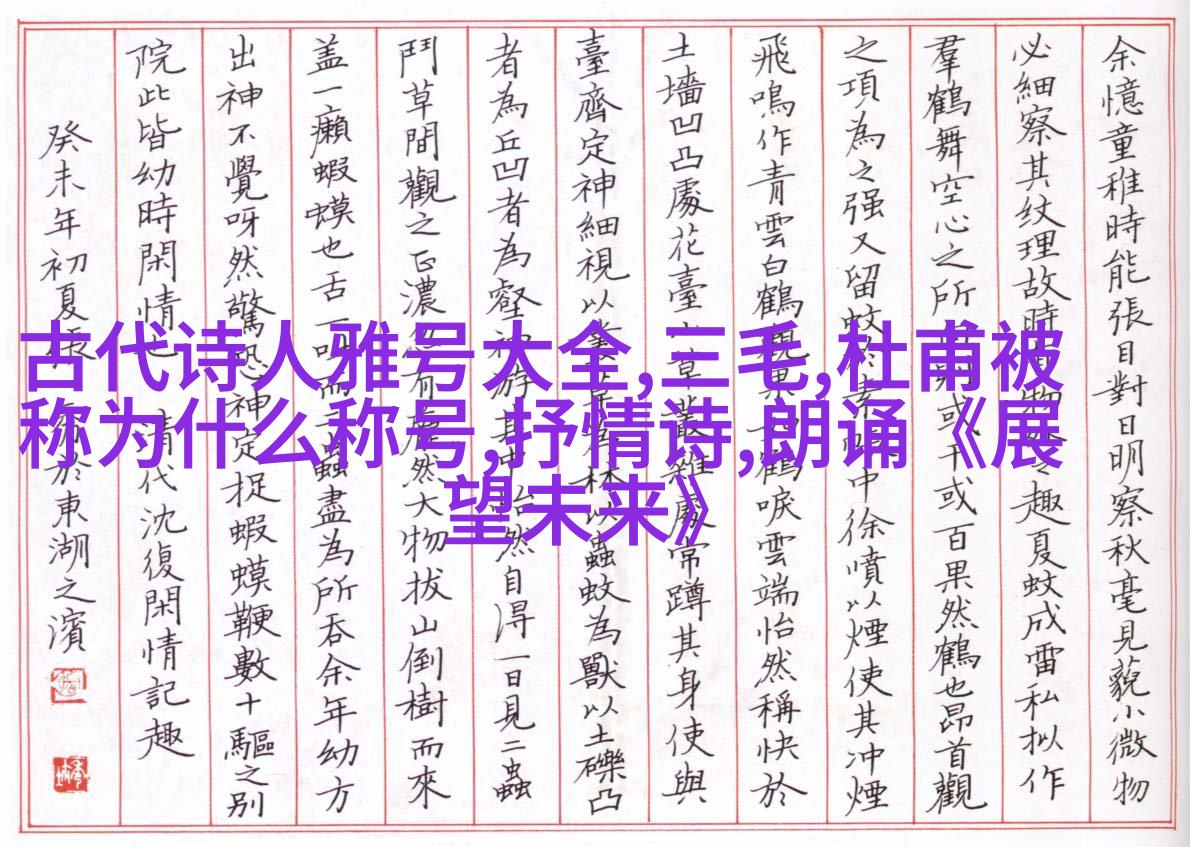 古代诗人雅号大全,三毛,杜甫被
称为什么称号,抒情诗,朗诵《展
望未来》
余憶童稚時能張目對日明察秋毫見藐小微物
必細察其纹理故時物趣夏蚊成雷私拟作
羣鶴舞空心之所則或千或百果然鶴也昂首觀
之項為之强又留蚊於素中徐噴以煙使其冲煙
飛鳴作青雲白鶴觀果如鶴唳雲端怡然稱快於
土墻凹凸處花臺小草叢雜處常蹲其身使與
臺齊定神細視以叢草為林以蟲蚊為獸以土礫凸
者為丘凹者為壑神游其中怡然自得一日見二蟲
鬥草間觀之正濃忽有龐然大物拔山倒樹而來
盖一癩蝦蟆也舌一吐而二蟲盡為所吞余年幼方
出神不覺呀然驚恐神定捉蝦蟆鞭數十驅之別
院此皆幼時閑情也 清代沈復閑情記趣
癸未年初夏於東湖之濱